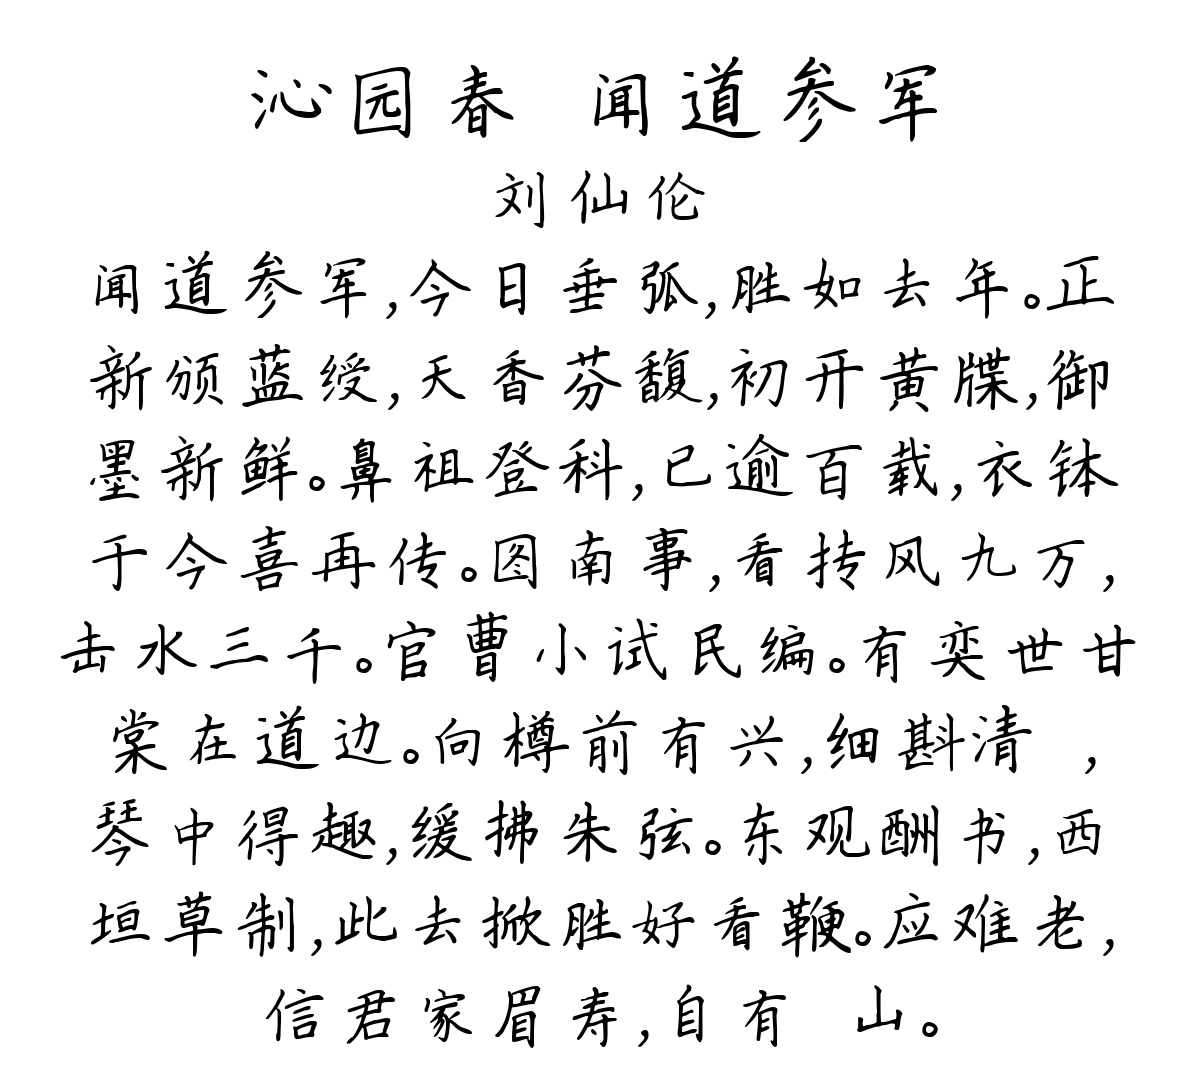 沁园春 闻道参军
刘仙伦
闻道参军,今日垂弧,胜如去年。正
新颁蓝绶,天香芬馥,初开黄牒,御
墨新鲜。鼻祖登科,已逾百载,衣钵
于今喜再传。图南事,看抟风九万,
击水三千。官曹小试民编。有奕世甘
棠在道边。向樽前有兴,细斟清 ,
琴中得趣,缓拂朱弦。东观酬书,西
垣草制,此去掀胜好看鞭。应难老,
信君家眉寿,自有 山。